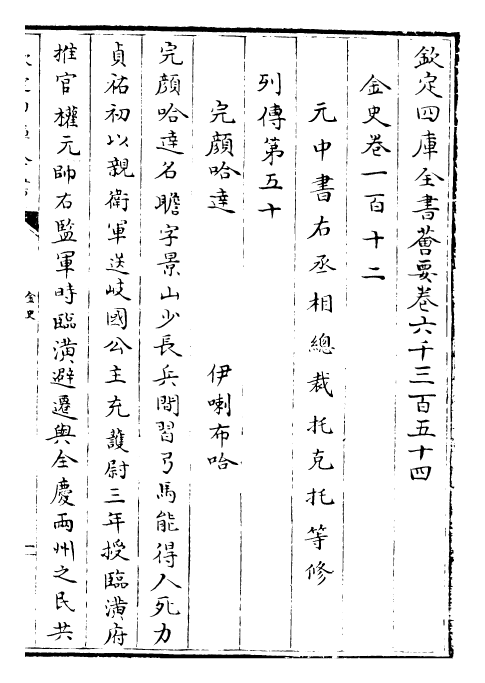 欽定四庫全書薈要卷六千三百五十四
金史卷一百十二
元中書右丞相總裁托克托等修
列傳第五十
完顔哈達　伊喇布哈
完顔哈達名瞻字景山少長兵間習弓馬能得人死力
貞祐初以親衛軍送岐國公主充護尉三年授臨潢府
推官權元帥右監軍時臨潢避遷與全慶兩州之民共
金史
一